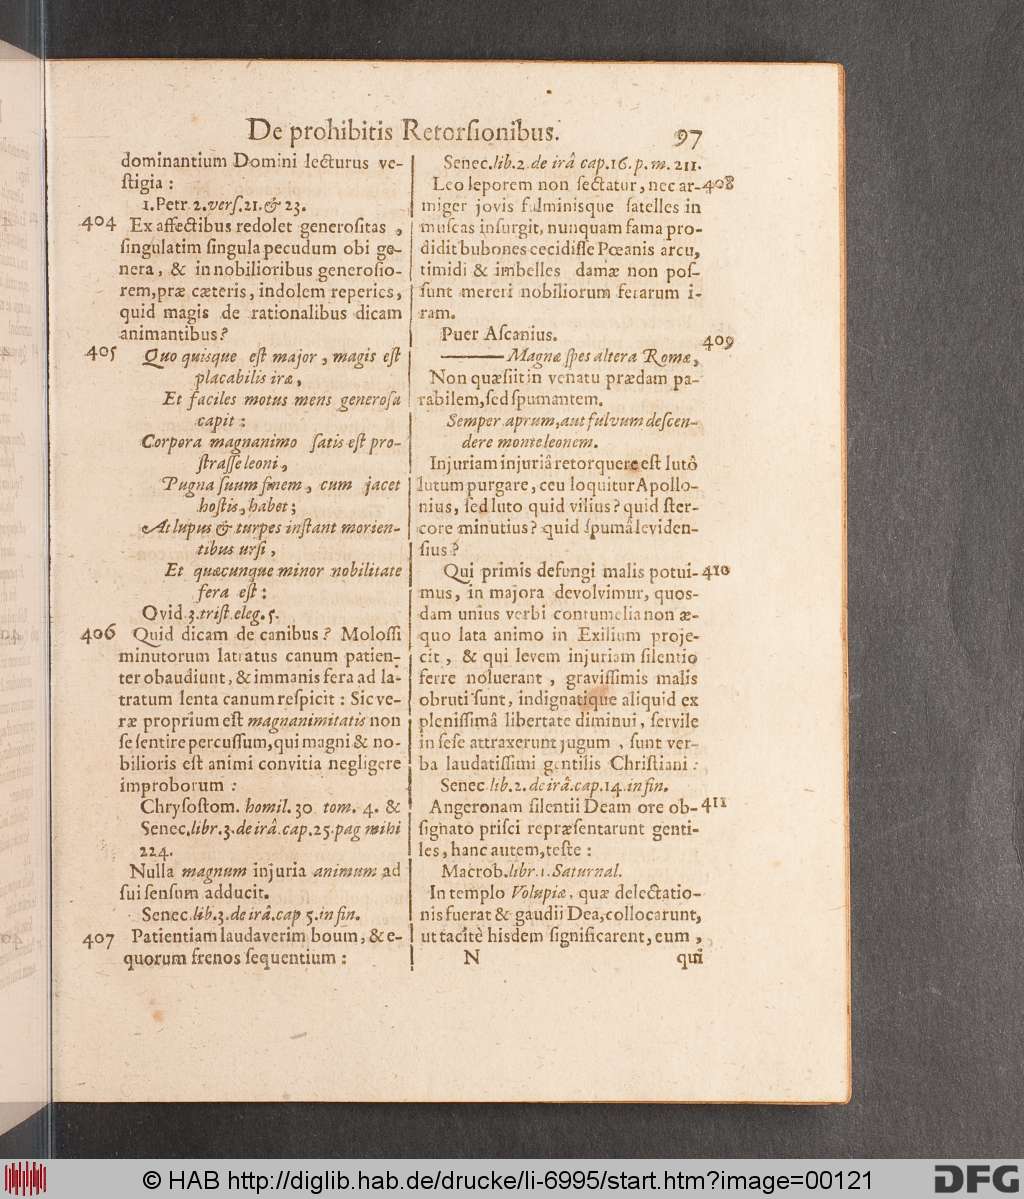 De prohibitis Retorsionibus. 97
dominantium Domini lecturus ve-
ſtigia:
1. Petr. 2. verſ. 21. & 23.
404 Ex affectibus redolet generoſitas,
ſingulatim ſingula pecudum obi ge-
nera, & in nobilioribus generoſio-
rem, præ cæteris, indolem reperies,
quid magis de rationalibus dicam
animantibus?
405 Quo quisque eſt major, magis eſt
placabilis iræ,
Et faciles motus mens generoſa
capit:
Corpora magnanimo ſatis eſt pro-
ſtraſſe leoni,
Pugna ſuum finem, cum jacet
hoſtis, habet;
At lupus & turpes inſtant morien-
tibus urſi,
Et quæcunque minor nobilitate
fera eſt:
Ovid. 3. triſt. eleg. 5.
406 Quid dicam de canibus? Moloſſi
minutorum latratus canum patien-
ter obaudiunt, & immanis fera ad la-
tratum lenta canum reſpicit: Sic ve-
ræ proprium eſt magnanimitatis non
ſe ſentire percuſſum, qui magni & no-
bilioris eſt animi convitia negligere
improborum:
Chryſoſtom. homil. 30 tom. 4. &
Senec. libr. 3. de irâ cap. 25. pag mihi
224.
Nulla magnum injuria animum ad
ſui ſenſum adducit.
Senec. lib. 3. de irâ. cap 5. in fin.
407 Patientiam laudaverim boum, & e-
quorum frenos ſequentium:
Senec. lib. 2. de irâ cap. 16. p. m. 211.
Leo leporem non ſectatur, nec ar- 408
miger jovis fulminisque ſatelles in
muſcas inſurgit, nunquam fama pro-
didit bubones cecidiſſe Pœanis arcu,
timidi & imbelles damæ non poſ-
ſunt mereri nobiliorum ferarum i-
ram.
Puer Aſcanius. 409
Magnæ ſpes altera Romæ,
Non quæſiit in venatu prædam pa-
rabilem, ſed ſpumantem.
Semper aprum, aut fulvum deſcen-
dere monte leonem.
Injuriam injuriâ retorquere eſt lutô
lutum purgare, ceu loquitur Apollo-
nius, ſed luto quid vilius? quid ſter-
core minutius? quid ſpumâ leviden-
ſius?
Qui primis defungi malis potui- 410
mus, in majora devolvimur, quos-
dam unius verbi contumelia non æ-
quo lata animo in Exilium proje-
cit, & qui levem injuriam ſilentio
ferre noluerant, graviſſimis malis
obruti ſunt, indignatique aliquid ex
pleniſſimâ libertate diminui, ſervile
in ſeſe attraxerunt jugum, ſunt ver-
ba laudatiſſimi gentilis Chriſtiani:
Senec. lib. 2. de irâ. cap. 14. in fin.
Angeronam ſilentii Deam ore ob- 411
ſignato priſci repræſentarunt genti-
les, hanc autem, teſte:
Macrob. libr. 1. Saturnal.
In templo Volupiæ, quæ delectatio-
nis fuerat & gaudii Dea, collocarunt,
ut tacitè hisdem ſignificarent, eum,
N qui
© HAB http://diglib.hab.de/drucke/li-6995/start.htm?image=00121
DFG